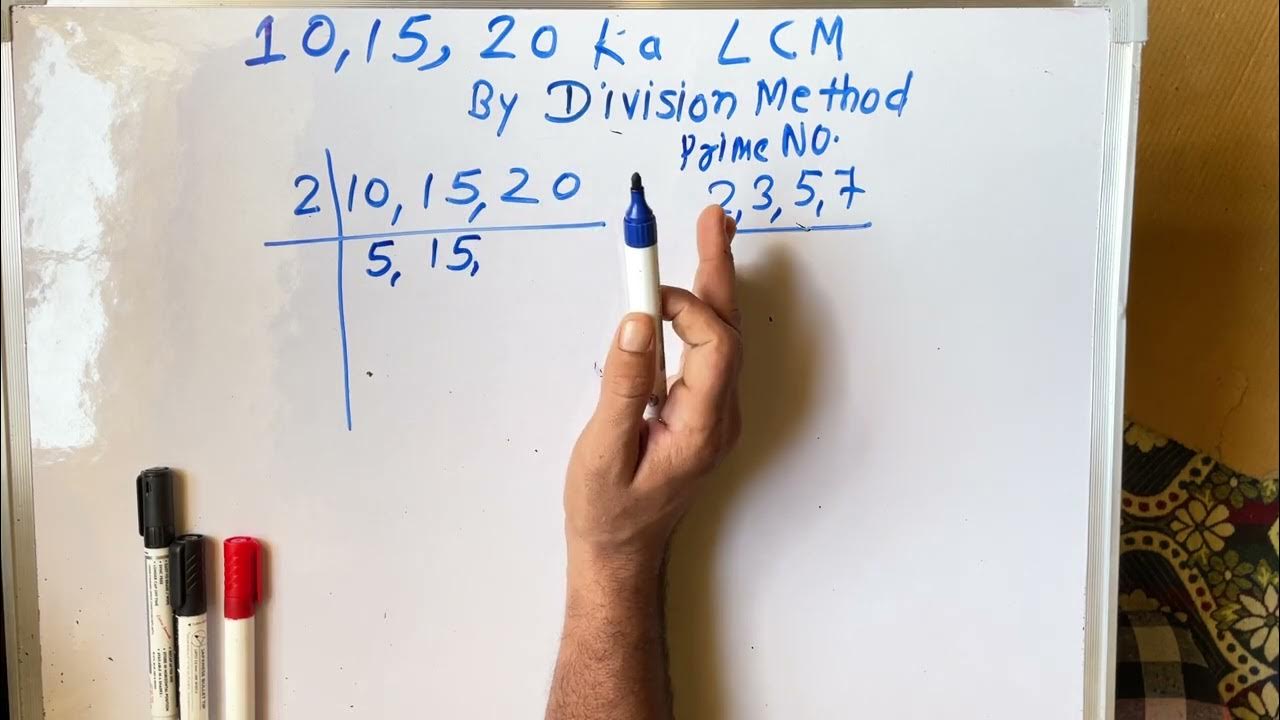 10, 15, 20 Ka LCM
By Division Method
Prime NO.
2 10, 15, 20
2, 3, 5, 7
5, 15,